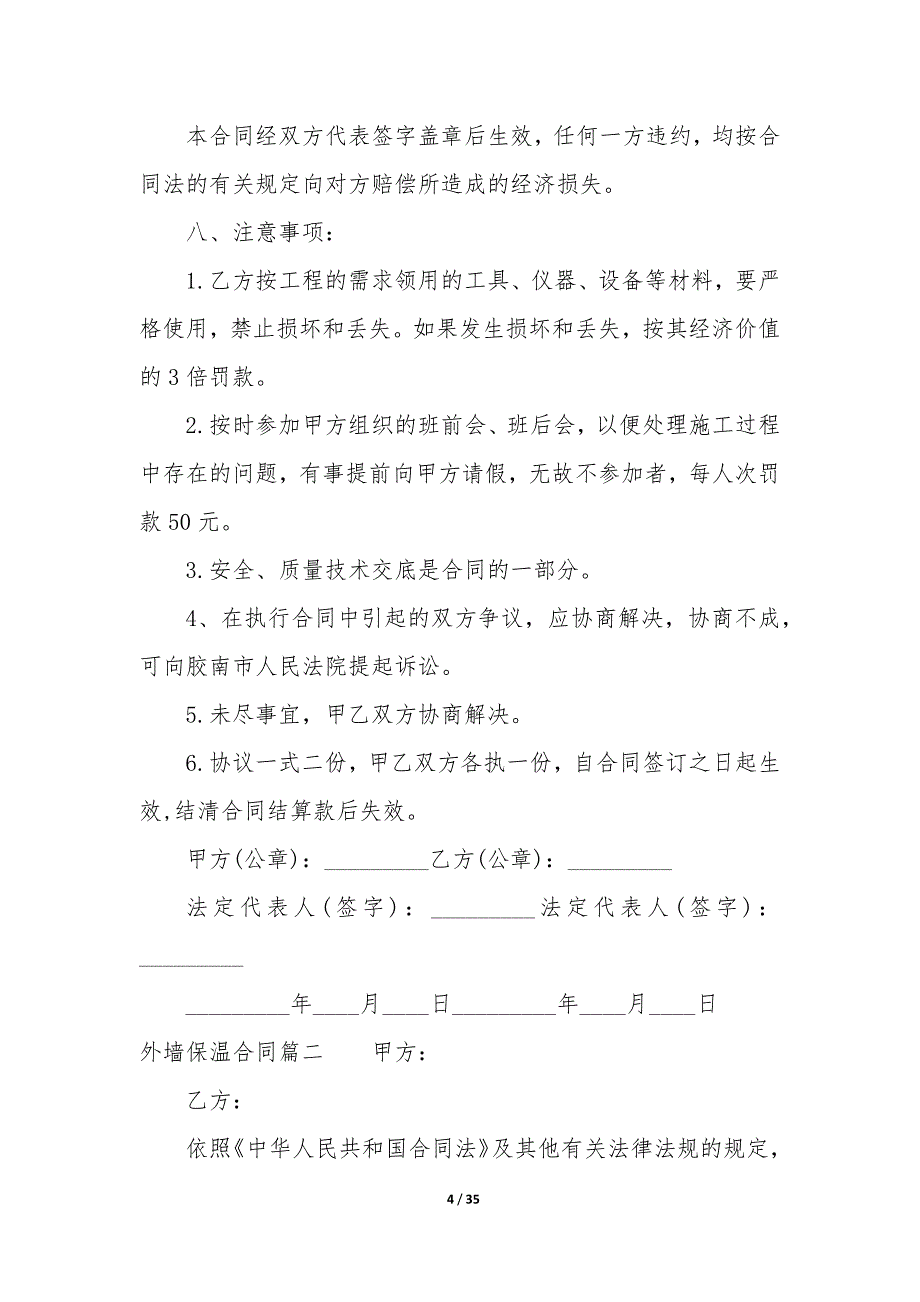 本合同经双方代表签字盖章后生效，任何一方违约，均按合
同法的有关规定向对方赔偿所造成的经济损失。
八、注意事项：
1.乙方按工程的需求领用的工具、仪器、设备等材料，要严
格使用，禁止损坏和丢失。如果发生损坏和丢失，按其经济价值
的3倍罚款。
2.按时参加甲方组织的班前会、班后会，以便处理施工过程
中存在的问题，有事提前向甲方请假，无故不参加者，每人次罚
款50元。
3.安全、质量技术交底是合同的一部分。
4、在执行合同中引起的双方争议，应协商解决，协商不成，
可向胶南市人民法院提起诉讼。
5.未尽事宜，甲乙双方协商解决。
6.协议一式二份，甲乙双方各执一份，自合同签订之日起生
效,结清合同结算款后失效。
甲方(公章)：_________乙方(公章)：_________
法定代表人(签字)：_________法定代表人(签字)：
_________
_________年____月____日_________年____月____日
外墙保温合同篇二 甲方：
乙方：
依照《中华人民共和国合同法》及其他有关法律法规的规定，
4 / 35